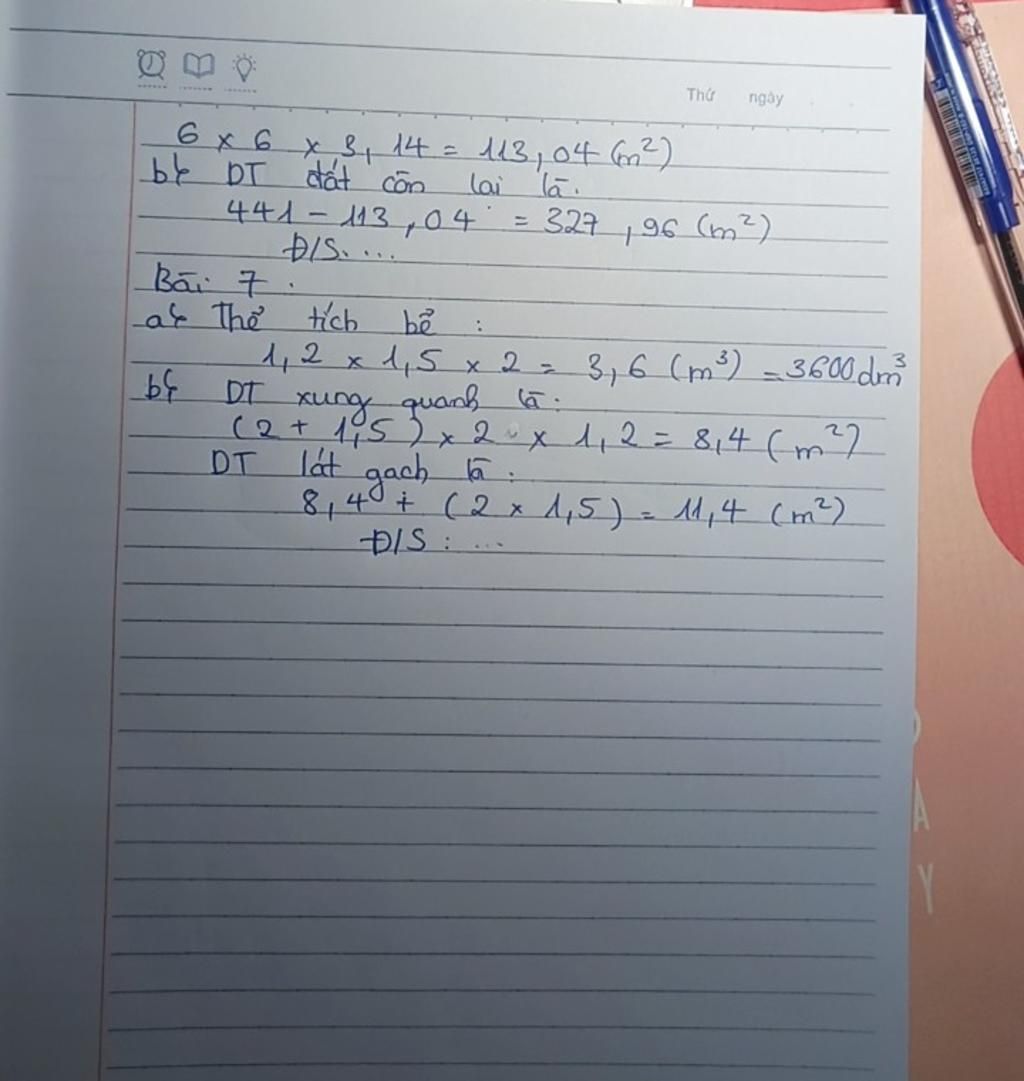 Thứ ngày
6 x 6 x 3,14 = 113,04 (m²)
b/ DT đất còn lại là.
441 - 113,04 = 327,96 (m²)
Đ/S....
Bài 7.
a/ Thể tích bể :
1,2 x 1,5 x 2 = 3,6 (m³) = 3600dm³
b/ DT xung quanh là :
(2 + 1,5) x 2 x 1,2 = 8,4 (m²)
DT lát gạch là :
8,4 + (2 x 1,5) = 11,4 (m²)
Đ/S : ...
A
Y